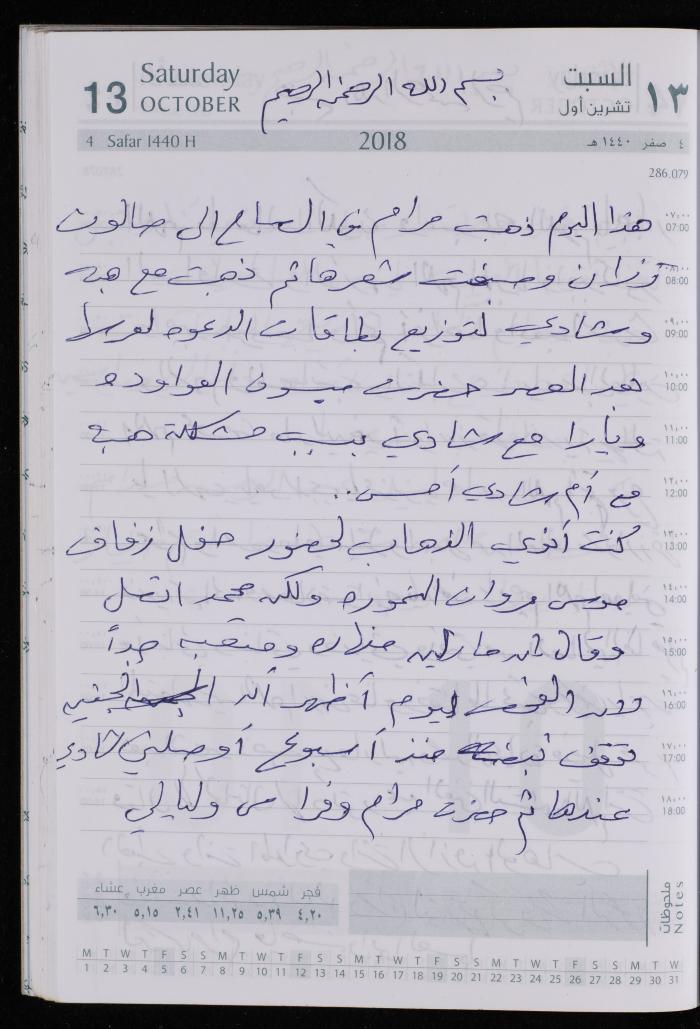 13 Saturday OCTOBER
بسم الله الرحمن الرحيم
السبت ١٣
تشرين أول
4 Safar 1440 H 2018 ٤ صفر ١٤٤٠ هـ
286.079
هذا اليوم ذهبت مرام في الصباح الى صالون
رزان وصبغت شعرها ثم ذهبت مع هبه
وشادي لتوزيع بطاقات الدعوه لعرسها
بعد العصر حضرت ميسون العواوده
ويارا مع شادي بسبب مشكلة هبه
مع أم شادي أمس..
كنت أنوي الذهاب لحضور حفل زفاف
عروس مروان النموره ولكن محمد اتصل
وقال ان مارلين منهاره ومتعبه جداً
لان الفحص اليوم أظهر أن الجنين
توقف نبضه منذ أسبوع أوصلني شادي
عندها ثم حضرت مرام وفراس وليالي
٠٧:٠٠ 07:00
٠٨:٠٠ 08:00
٠٩:٠٠ 09:00
١٠:٠٠ 10:00
١١:٠٠ 11:00
١٢:٠٠ 12:00
١٣:٠٠ 13:00
١٤:٠٠ 14:00
١٥:٠٠ 15:00
١٦:٠٠ 16:00
١٧:٠٠ 17:00
١٨:٠٠ 18:00
فجر شمس ظهر عصر مغرب عشاء
٤,٢٠ ٥,٣٩ ١١,٢٥ ٢,٤١ ٥,١٥ ٦,٣٠
ملحوظات
Notes
M T W T F S S M T W T F S S M T W T F S S M T W T F S S M T W
1 2 3 4 5 6 7 8 9 10 11 12 13 14 15 16 17 18 19 20 21 22 23 24 25 26 27 28 29 30 31